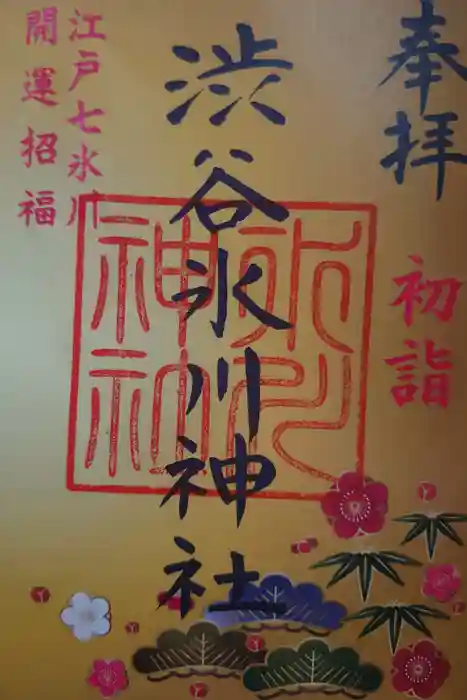 奉拝
初詣
渋谷氷川神社
江戸七氷川
開運招福
氷川
神社